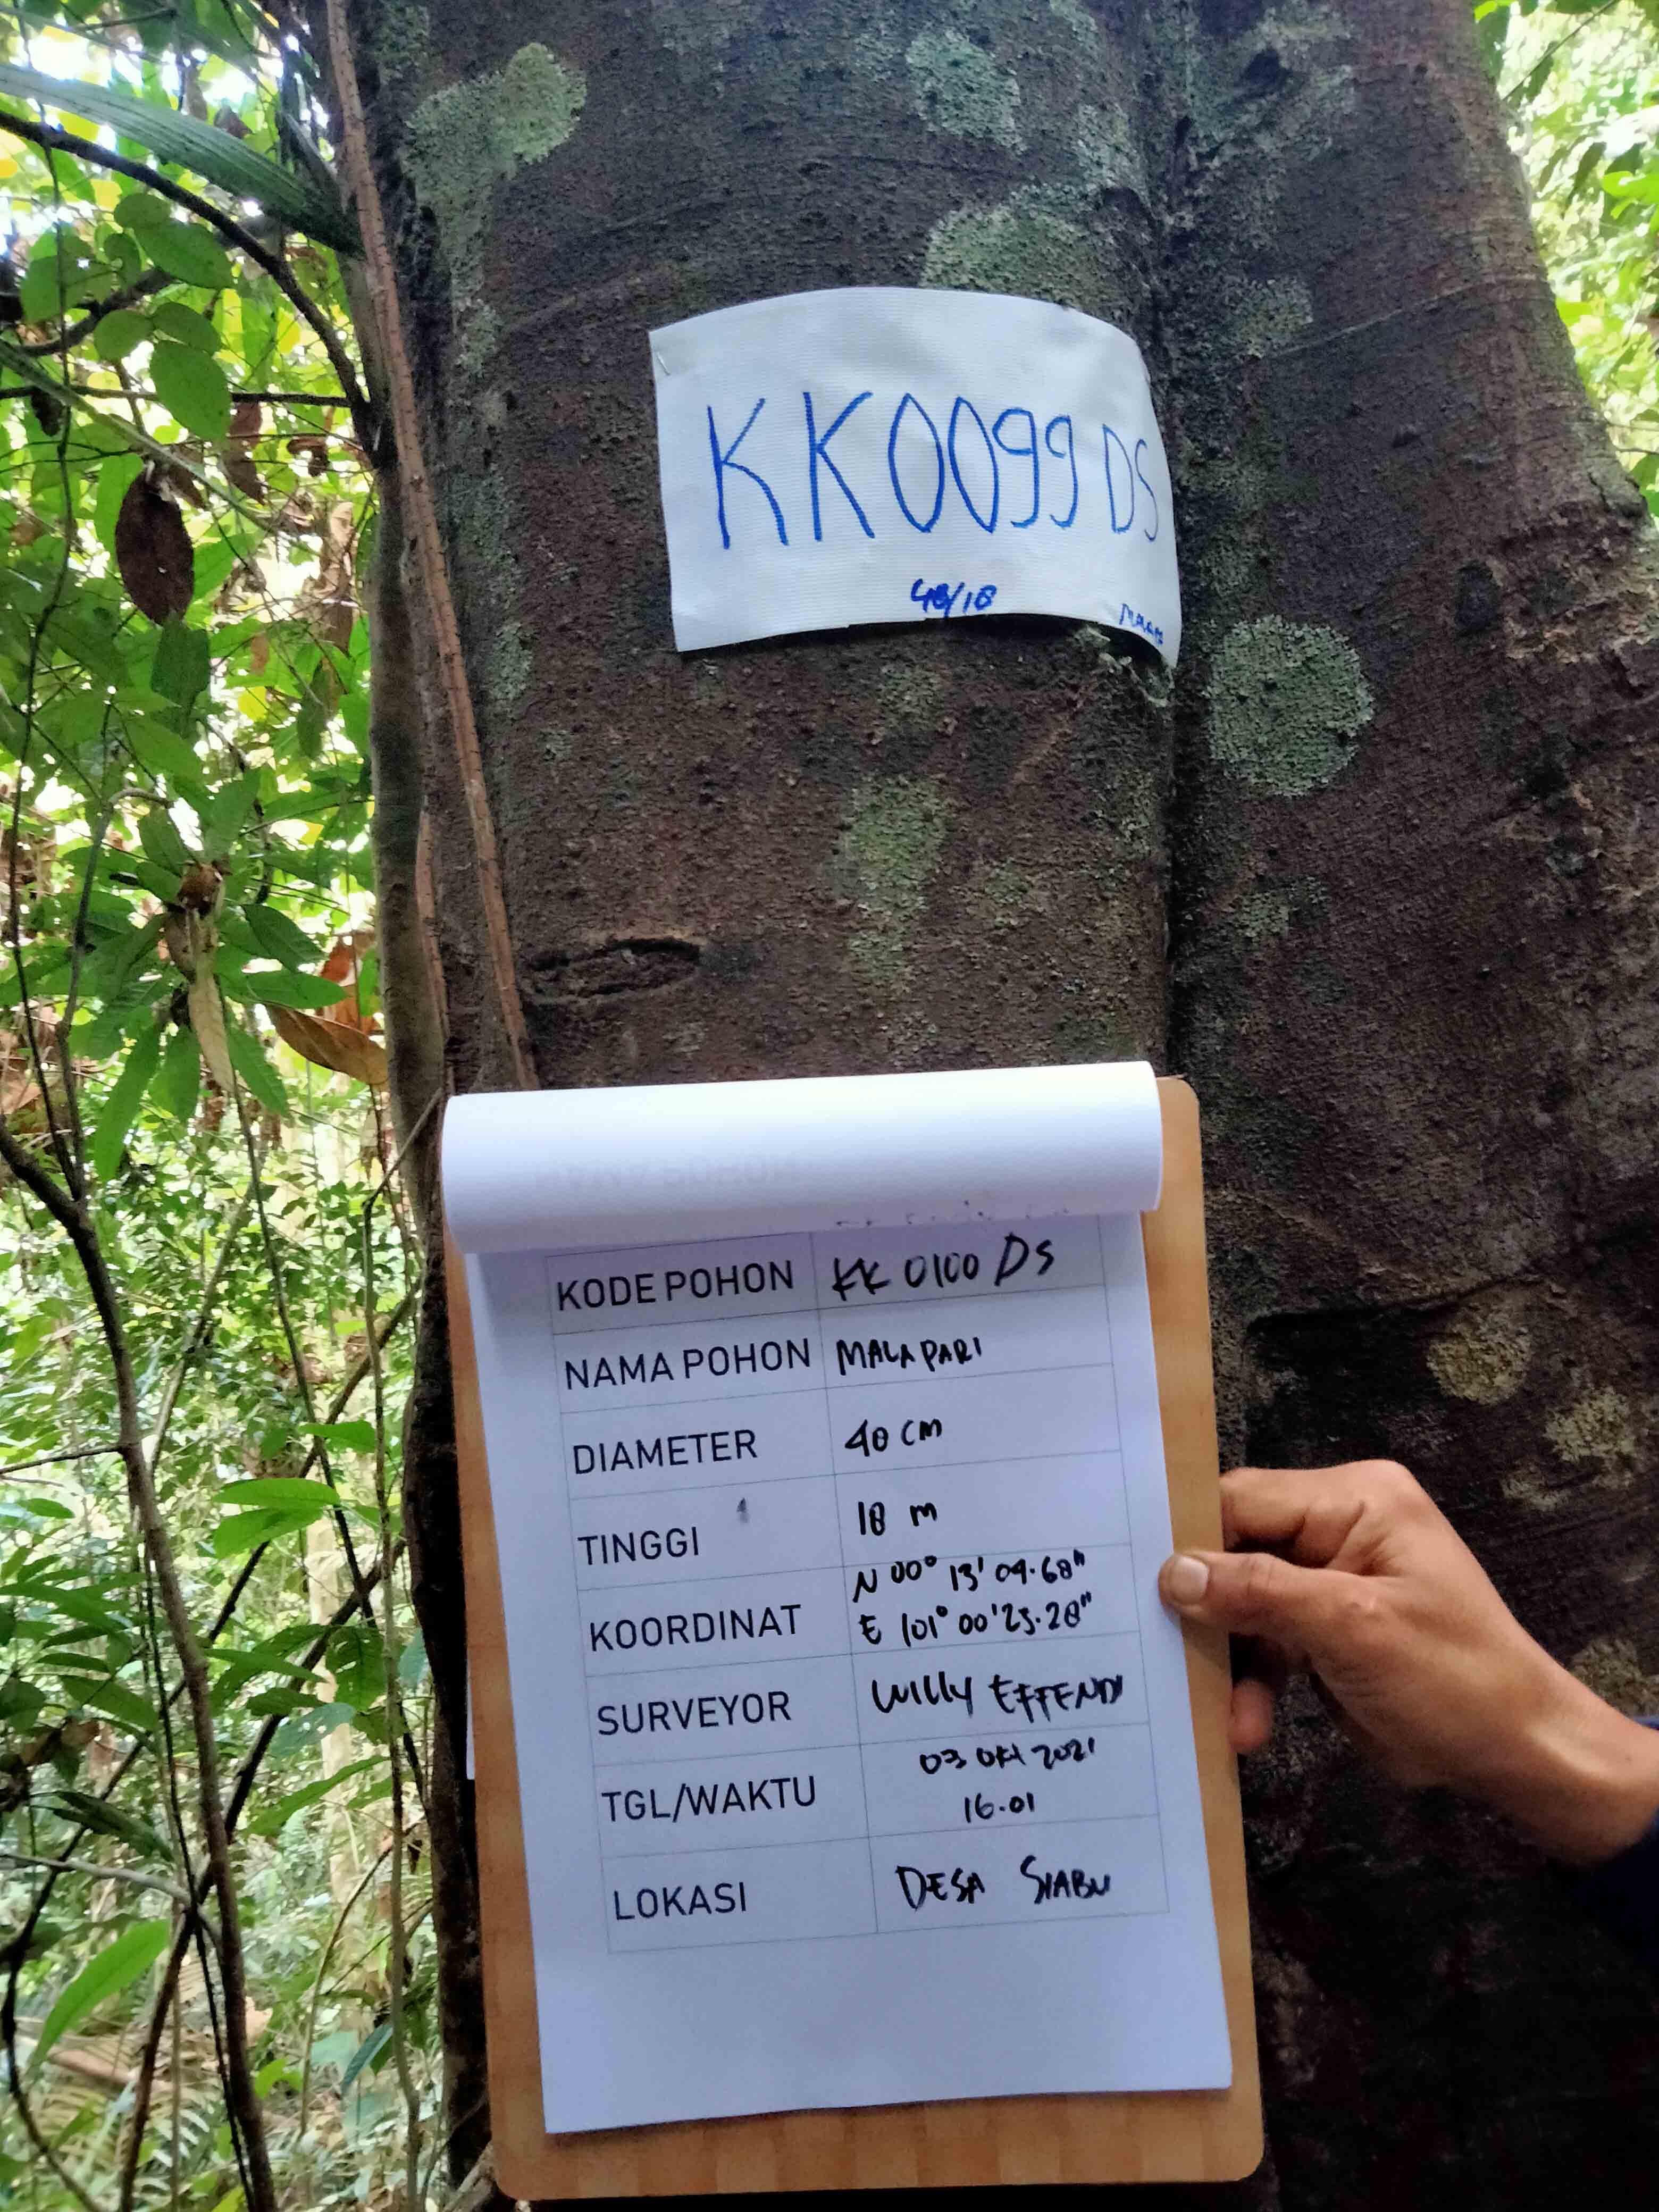 KK0099 DS
48/18
KODE POHON KK 0100 DS
NAMA POHON MALAPARI
DIAMETER 48 CM
TINGGI 18 m
KOORDINAT N 00° 13' 09.68"
E 101° 00' 25.28"
SURVEYOR WILLY EFFENDI
TGL/WAKTU 03 OKT 2021
16.01
LOKASI DESA SIABU